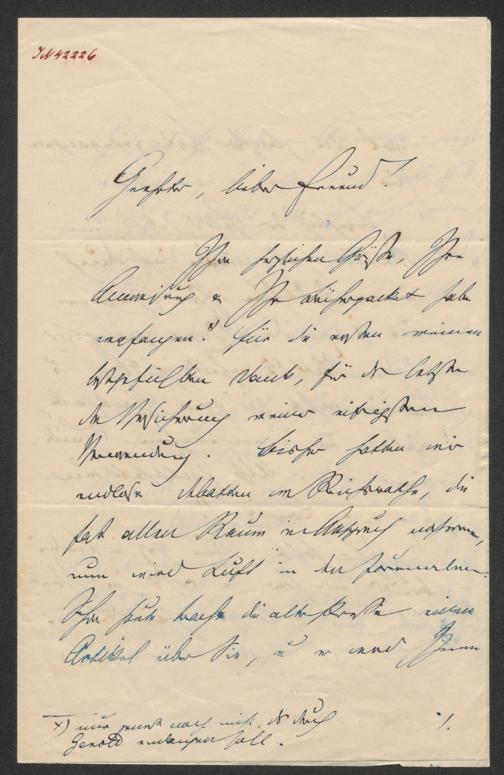 IN 42226
Geehrter, lieber Freund!
Ihre herzlichen Grüße, Ihre
Anweisung & Ihr Bücherpacket habe
empfangen. x) Für die ersten meinen
tiefgefühlten Dank, für das letzte
die Versicherung meiner eifrigsten
Verwendung. Bisher hatten wir
endlose Debatten im Reichsrathe, die
fast allen Raum in Anspruch nahmen,
nun wird „Luft“ in den Journalen.
Schon heute brachte die alte Presse einen
Artikel über Sie, u er wird Ihnen
x) nur noch nicht, das durch
Gerold einlangen soll.
./.